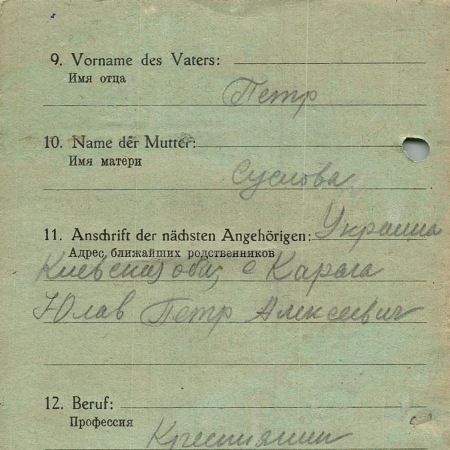 9. Vorname des Vaters:
Имя отца
Петр
10. Name der Mutter:
Имя матери
Суслова
11. Anschrift der nächsten Angehörigen: Украина
Адрес ближайших родственников
Киевская с Карага
Петр Алексеевич
12. Beruf:
Профессия